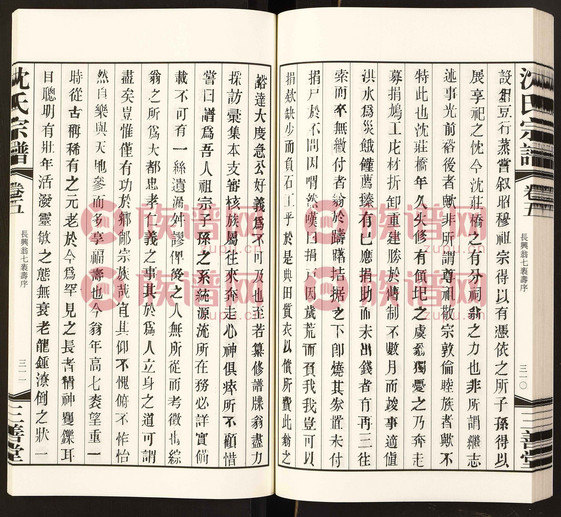 沈氏宗譜
卷五
長興翁七袠壽序
三一〇
三善堂
設俎豆行蒸嘗叙昭穆祖宗得以有憑依之所子孫得以
展享祀之忱今沈莊橋之有分祠翁之力也非所謂繼志
述事光前裕後者歟非所謂尊祖敬宗敦倫睦族者歟不
特此也沈莊橋年久失修有傾圮之虞翁獨憂之乃奔走
募捐鳩工庀材折卸重建勝於舊制不數月而竣事適值
洪水爲災餓饉薦臻有已應捐助而未出錢者有再三往
索而卒無繳付者翁於躊躇拮据之下卽燒其券置未付
捐戸於不問因喟然嘆曰捐戸因歲荒而我我豈可以
捐欵缺少而負石工乎於是典田質衣以償所費此翁之
豁達大度急公好義爲不可及也至若纂修譜牒翁盡力
採訪彙集本支審核族屬往來奔走心神俱瘁所不顧惜
嘗曰譜爲吾人祖宗子孫之系統源流所在務必詳實備
載不可有一絲遺漏舛謬俾後之人無所從而考徵焉綜
翁之所爲大都忠孝之義之事其於爲人立身之道可謂
盡矣豈惟僅有功於鄉鄰宗族哉宜其仰不愧俯不怍
然自樂與天地參而多享福壽也今翁年高七袠望重一
時從古稱稀有之元老於今爲罕見之長者精神矍鑠耳
目聰明有壯年活潑靈敏之態無衰老龍鍾潦倒之狀一
沈氏宗譜
卷五
長興翁七袠壽序
三一一
三善堂
族谱网
族谱网
族谱网
族谱网